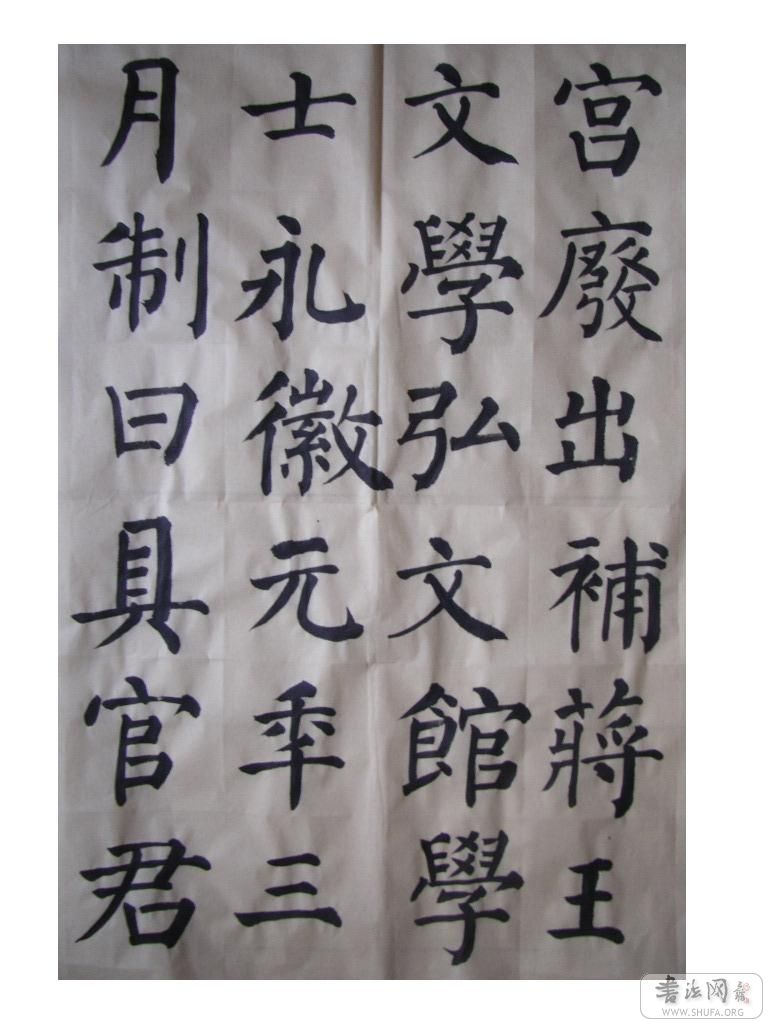 宮廢出補蔣王
文學弘文館學
士永徽元年三
月制曰具官君
書法网
WWW.SHUFA.ORG